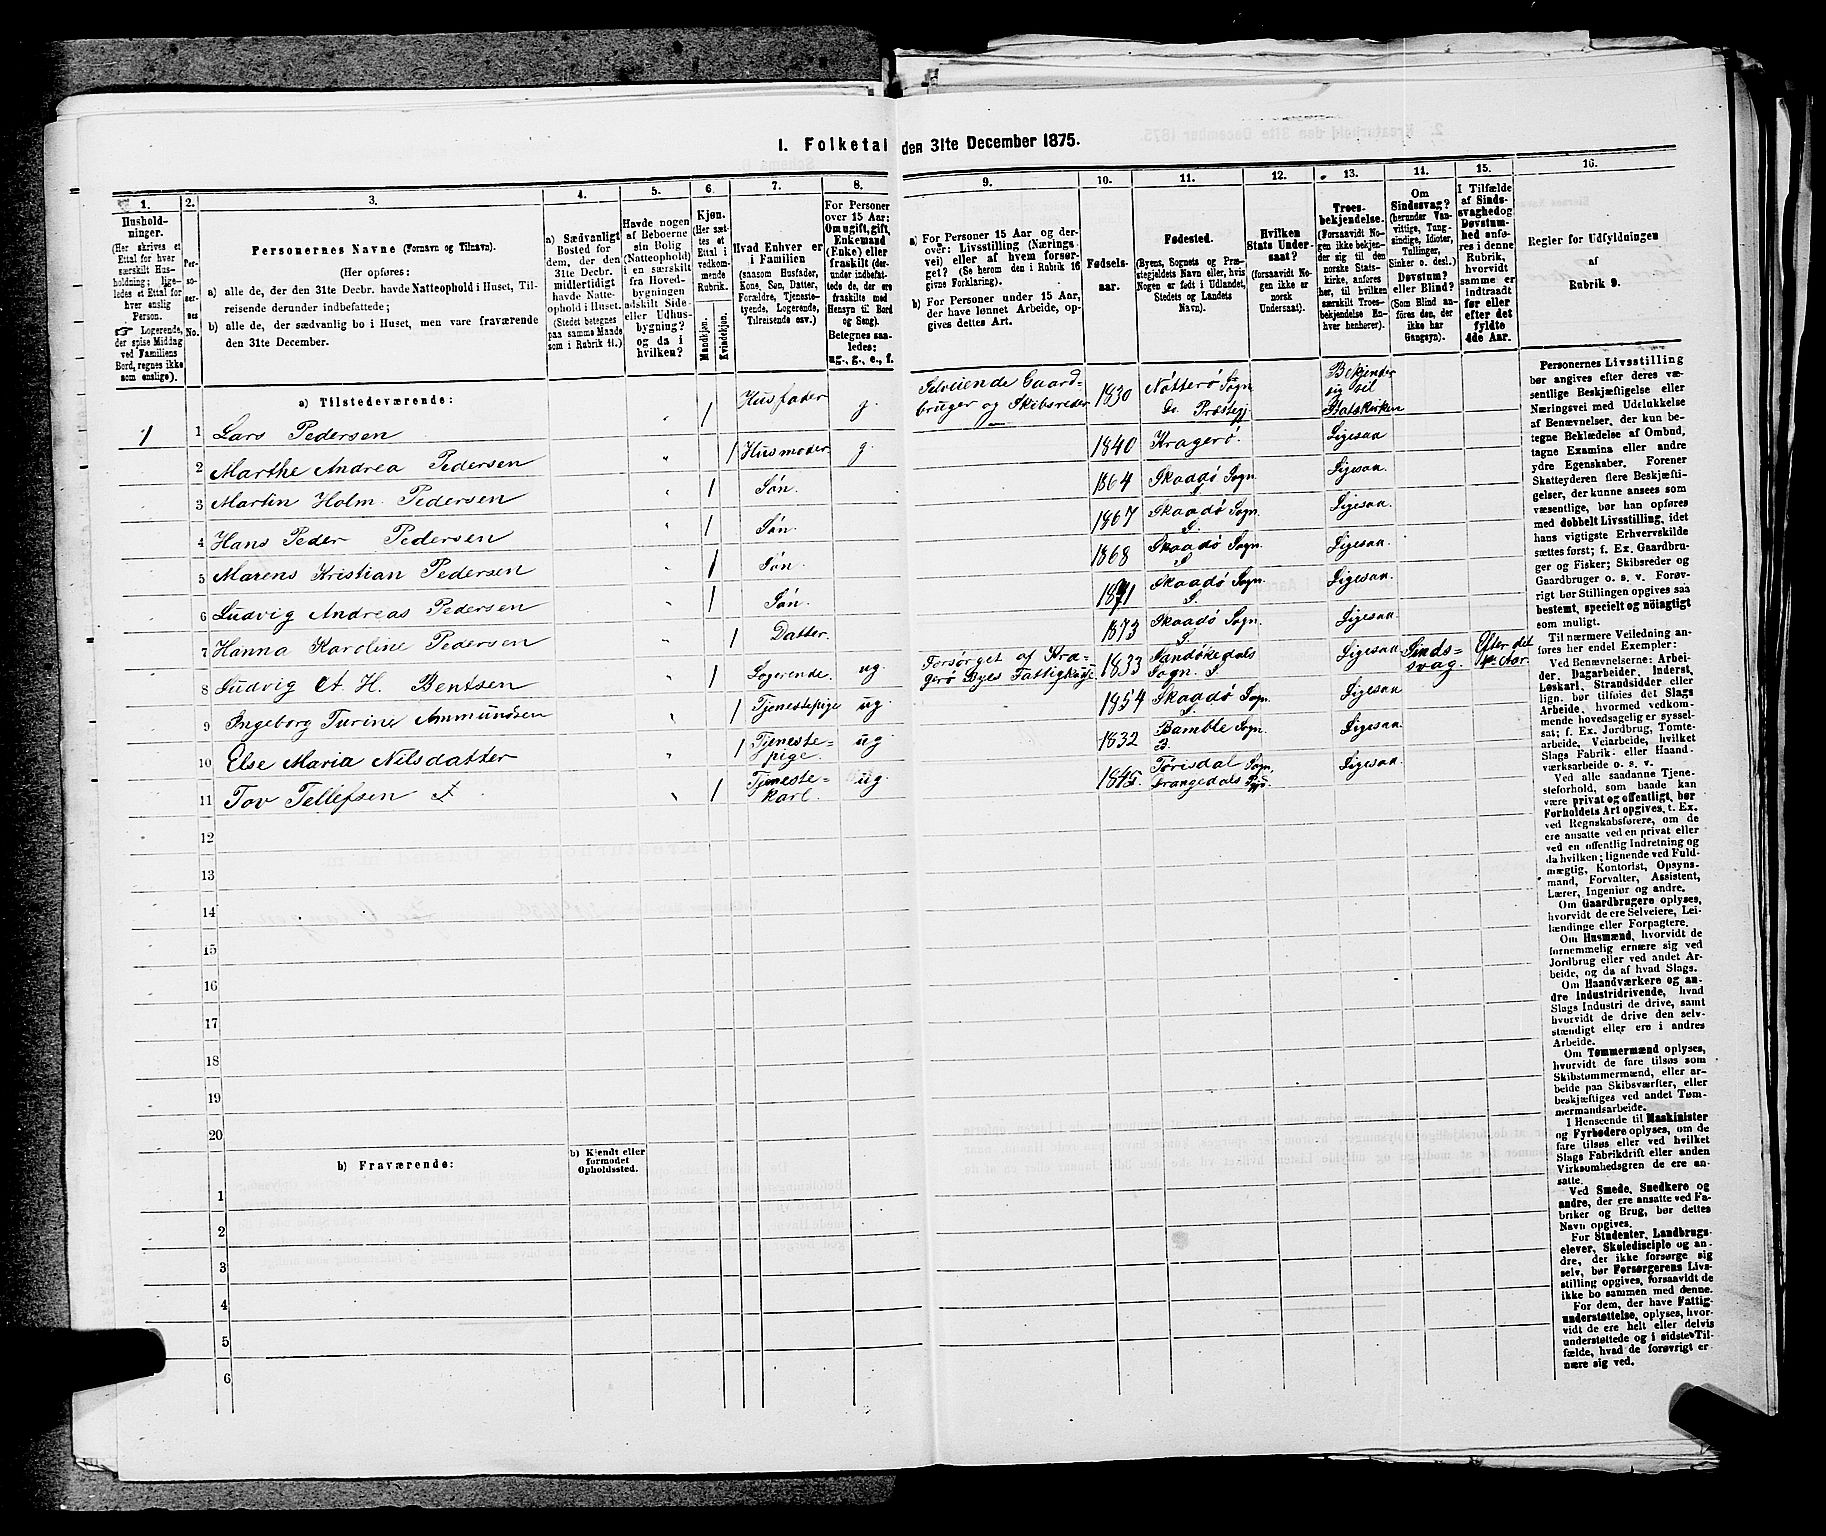 1. Folketal den 31te December 1875.
1. Husholdninger. (Her skrives et Ettal for hver særskilt Husholdning; ligeledes et Ettal for hver enslig Person. ☞ Logerende, der spise Middag ved Familiens Bord, regnes ikke som enslige).
2. Personernes No.
3. Personernes Navne (Fornavn og Tilnavn).
(Her opføres:
a) alle de, der den 31te Decbr. havde Natteophold i Huset, Tilreisende derunder indbefattede;
b) alle de, der sædvanlig bo i Huset, men vare fraværende den 31te December.
4. a) Sædvanligt Bosted for dem, der den 31te Decbr. midlertidigt havde Natteophold i Huset. (Stedet betegnes paa samme Maade som i Rubrik 11.)
5. Havde nogen af Beboerne sin Bolig (Natteophold) i en særskilt fra Hovedbygningen adskilt Side- eller Udhusbygning? og da i hvilken?
6. Kjøn. (Her sættes et Ettal i vedkommende Rubrik. Mandkjøn. Kvindekjøn.
7. Hvad Enhver er i Familien (saasom Husfader, Kone, Søn, Datter, Forældre, Tjenestetyende, Logerende, Tilreisende osv.)
8. For Personer over 15 Aar: Om ugift, gift, Enkemand (Enke) eller fraskilt (derunder indbefattede de, der ere fraskilte med Hensyn til Bord og Seng). Betegnes saaledes: ug., g., e., f.
9. a) For Personer 15 Aar og derover: Livsstilling (Næringsvei) eller af hvem forsørget? (Se herom den i Rubrik 16 givne Forklaring).
b) For Personer under 15 Aar, der have lønnet Arbeide, opgives dettes Art.
10. Fødselsaar.
11. Fødested. (Byens, Sognets og Præstegjeldets Navn eller, hvis Nogen er født i Udlandet, Stedets og Landets Navn).
12. Hvilken Stats Undersaat? (forsaavidt Nogen ikke er norsk Undersaat).
13. Troesbekjendelse. (Forsaavidt Nogen ikke bekjender sig til den norske Statskirke, anføres her, til hvilken særskilt Troesbekjendelse Enhver henhører).
14. Om Sindssvag? (herunder Vanvittige, Tungsindige, Idioter, Tullinger, Sinker o. desl.) Døvstum? eller Blind? (Som Blind anføres den, der ikke har Gangsyn).
15. I Tilfælde af Sindssvaghed og Døvstumhed anføres i denne Rubrik, hvorvidt samme er indtraadt før eller efter det fyldte 4de Aar.
16. Regler for Udfyldningen af Rubrik 9.
a) Tilstedeværende:
1 1 Lars Pedersen " 1 Husfader g. Selveiende Gaardbruger og Skibsreder 1830 Nötterö Sogn do. Præstegj Bekjender sig til Statskirken
2 Marthe Andrea Pedersen " 1 Husmoder g 1840 Kragerö. Ligesaa
3 Martin Holm Pedersen " 1 Sön. 1864 Skaadö Sogn. S. Ligesaa.
4 Hans Peder Pedersen " 1 Sön. 1867 Skaadö Sogn. S. Ligesaa.
5 Marens Kristian Pedersen " 1 Sön. 1868 Skaadö Sogn. S. Ligesaa.
6 Ludvig Andreas Pedersen " 1 Sön. 1871 Skaadö Sogn. S. Ligesaa.
7 Hanna Karoline Pedersen " 1 Datter. 1873 Skaadö Sogn. S. Ligesaa
8 Ludvig A. H. Bentsen " 1 Logerende. ug. Forsörget af Kragerö Byes Fattigkasse 1833 Sandökedals Sogn. S. Ligesaa Sindssvag. Efter det 4de Aar.
9 Ingeborg Turine Ammundsen " 1 Tjenestepige ug. 1854 Skaadö Sogn. S. Ligesaa.
10 Else Maria Nilsdatter " 1 Tjenestepige. ug. 1832 Bamble Sogn. B. Ligesaa.
11 Tov Tellefsen " 1 Tjenestekarl. ug. 1845. Törisdal Sogn Drangedals Ligesaa.
12
13
14
15
16
17
18
19
20
b) Fraværende: b) Kjendt eller formodet Opholdssted.
1
2
3
4
5
6
Personernes Livsstilling
bør angives efter deres væsentlige Beskjæftigelse eller
Næringsvei med Udelukkelse
af Benævnelser, der kun betegne Beklædelse af Ombud,
tagne Examina eller andre
ydre Egenskaber. Forener
Skatteyderen flere Beskjæftigelser, der kunne ansees som
væsentlige, bør han opføres
med dobbelt Livsstilling, idet
hans vigtigste Erhvervskilde
sættes først; f. Ex. Gaardbruger og Fisker; Skibsreder og
Gaardbruger o. s. v. Forøvrigt bør Stillingen opgives saa
bestemt, specielt og nöiagtigt
som muligt.
Til nærmere Veiledning anføres her endel Exempler:
Ved Benævnelserne: Arbeider, Dagarbeider, Inderst,
Løskarl, Strandsidder eller
lign. bør tilføies det Slags
Arbeide, hvormed vedkommende hovedsagelig er sysselsat; f. Ex. Jordbrug, Tomtearbeide, Veiarbeide, hvilket
Slags Fabrik- eller Haandværksarbeide o. s. v.
Ved alle saadanne Tjenesteforhold, som baade kan
være privat og offentligt, bør
Forholdets Art opgives, t. Ex.
ved Regnskabsførere, om de
ere ansatte ved en privat eller
ved en offentlig Indretning og
da hvilken; lignende ved Fuldmægtig, Kontorist, Opsynsmand, Forvalter, Assistent,
Lærer, Ingeniør og andre.
Om Gaardbrugere oplyses,
hvorvidt de ere Selveiere, Leilændinge eller Forpagtere.
Om Husmænd, hvorvidt de
fornemmelig ernære sig ved
Jordbrug eller ved andet Arbeide, og da af hvad Slags.
Om Haandværkere og andre Industridrivende, hvad
Slags Industri de drive, samt
hvorvidt de drive den selvstændigt eller ere i andres
Arbeide.
Om Tømmermænd oplyses,
hvorvidt de fare tilsøs som
Skibstømmermænd, eller arbeide paa Skibsværfter, eller
beskjæftiges ved andet Tømmermandsarbeide.
I Henseende til Maskinister
og Fyrbødere oplyses, om de
fare tilsøs eller ved hvilket
Slags Fabrikdrift eller anden
Virksomhedsgren de ere ansatte.
Ved Smede, Snedkere og
andre, der ere ansatte ved Fabriker og Brug, bør dettes
Navn opgives.
For Studenter, Landbrugselever, Skoledisciple og andre, der ikke forsørge sig
selv, bør Forsørgerens Livsstilling opgives, forsaavidt de
ikke bo sammen med denne.
For dem, der have Fattigunderstøttelse, oplyses, hvorvidt de ere helt eller delvis
understøttede og i sidste Tilfælde, hvad de forøvrigt ernære sig ved.